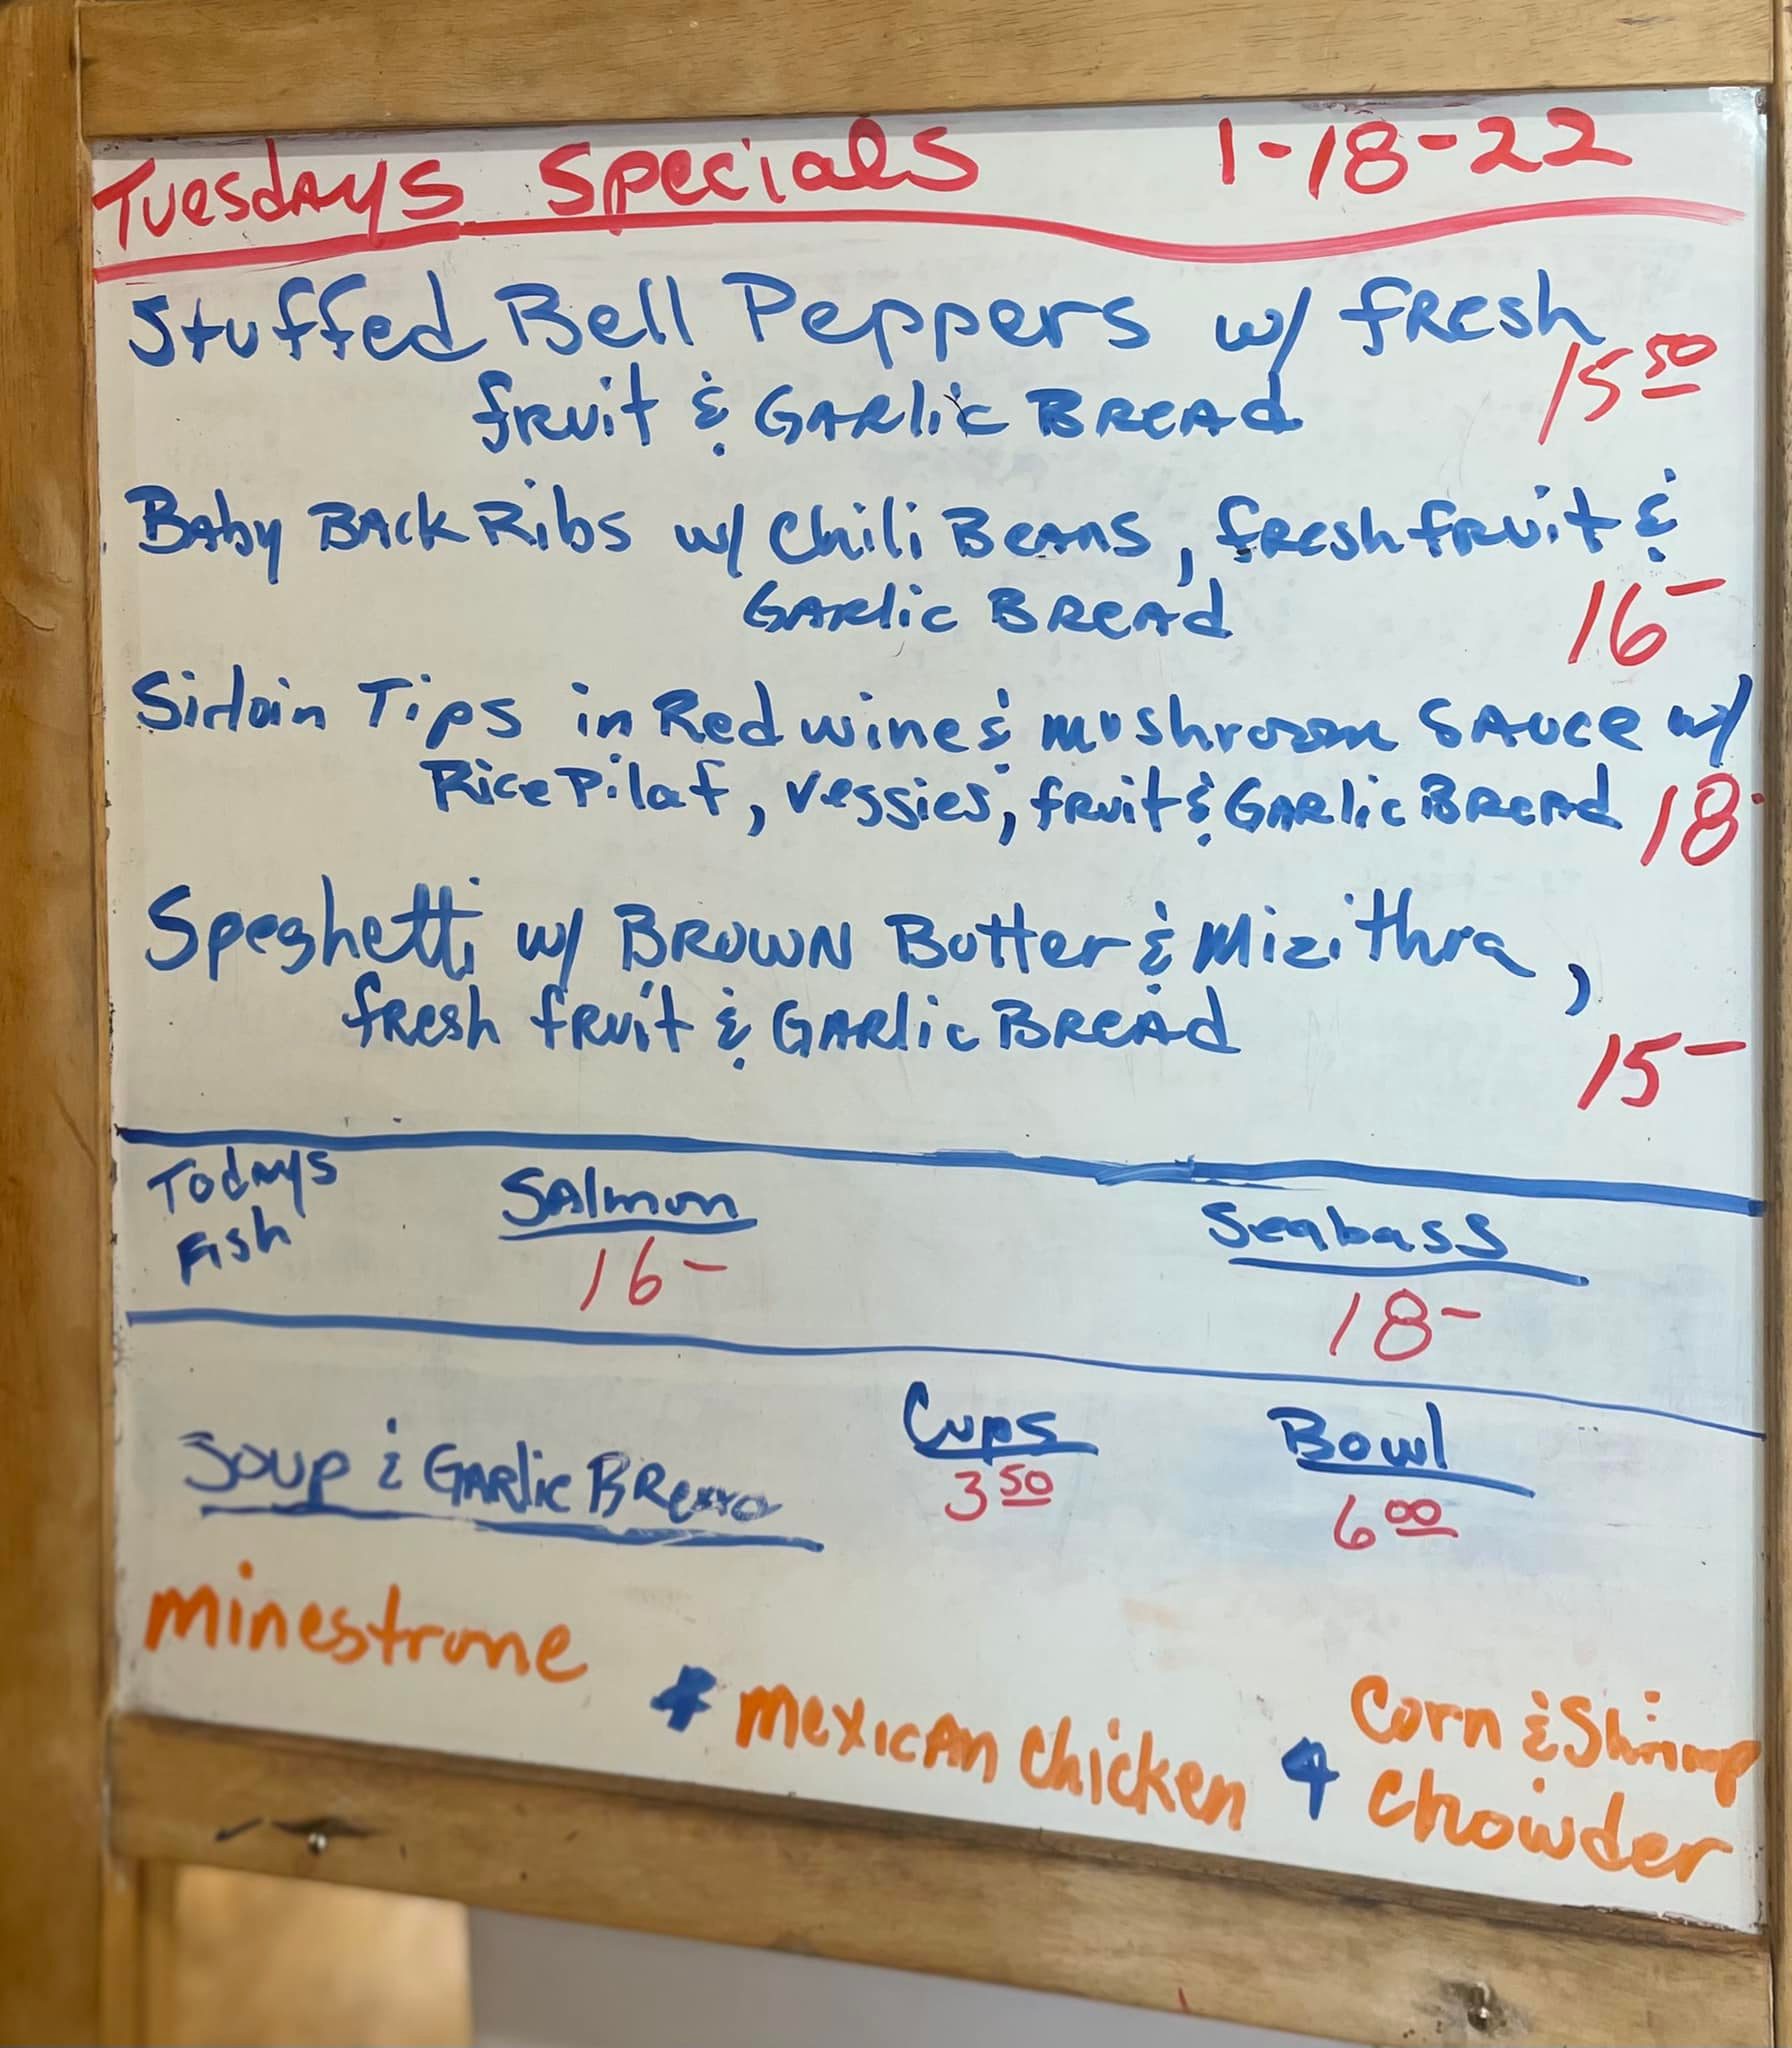 Tuesdays Specials 1-18-22
Stuffed Bell Peppers w/ fresh
fruit & Garlic Bread 15.50
Baby Back Ribs w/ Chili Beans, fresh fruit &
Garlic Bread 16-
Sirloin Tips in Red wine & mushroom Sauce w/
Rice Pilaf, veggies, fruit & Garlic Bread 18-
Speghetti w/ Brown Butter & Mizithra,
fresh fruit & Garlic Bread
15-
Todays
Fish
Salmon
16-
Seabass
18-
Soup & Garlic Bread
Cups
3 50
Bowl
6 00
minestrone
& mexican Chicken
& Corn & Shrimp
Chowder